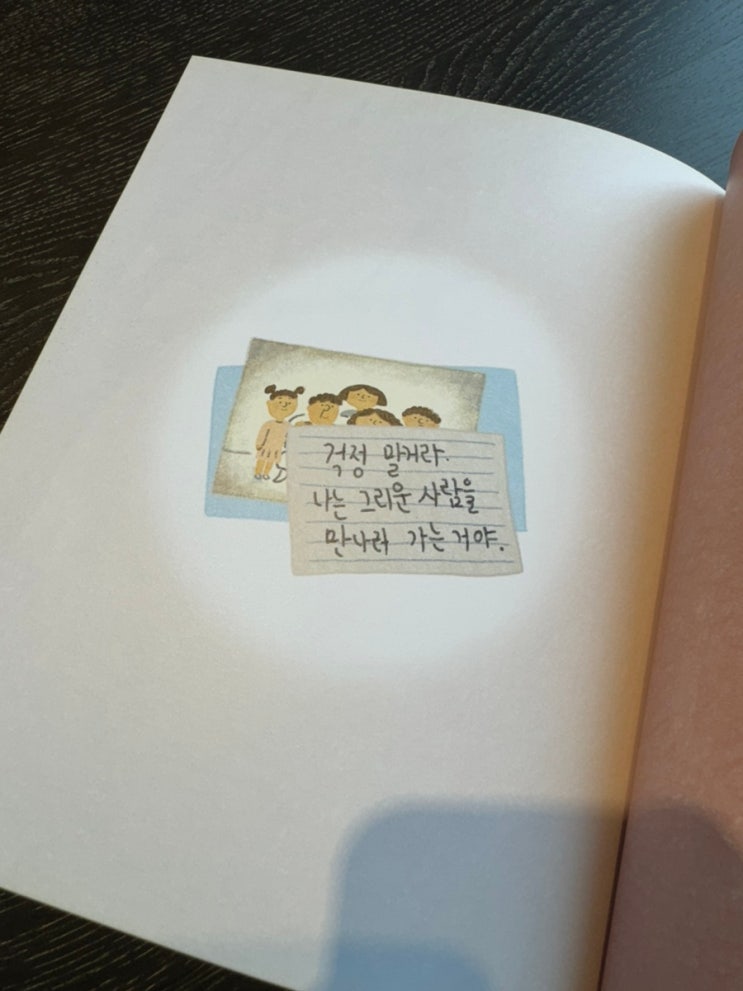 걱정 말거라.
나는 그리운 사람을
만나러 가는 거야.